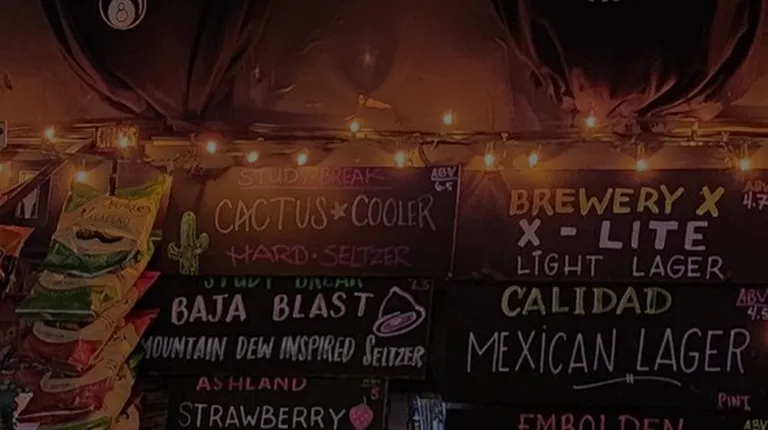 8
STUDY BREAK
ABV
6.5
CACTUS★COOLER
HARD·SELTZER
STUDY BREAK
BAJA BLAST
MOUNTAIN DEW INSPIRED SELTZER
ASHLAND
STRAWBERRY
BREWERY X
ABV
4.7
X-LITE
LIGHT LAGER
CALIDAD
ABV
4.5
MEXICAN LAGER
PINT
EMBOLDEN
ABV